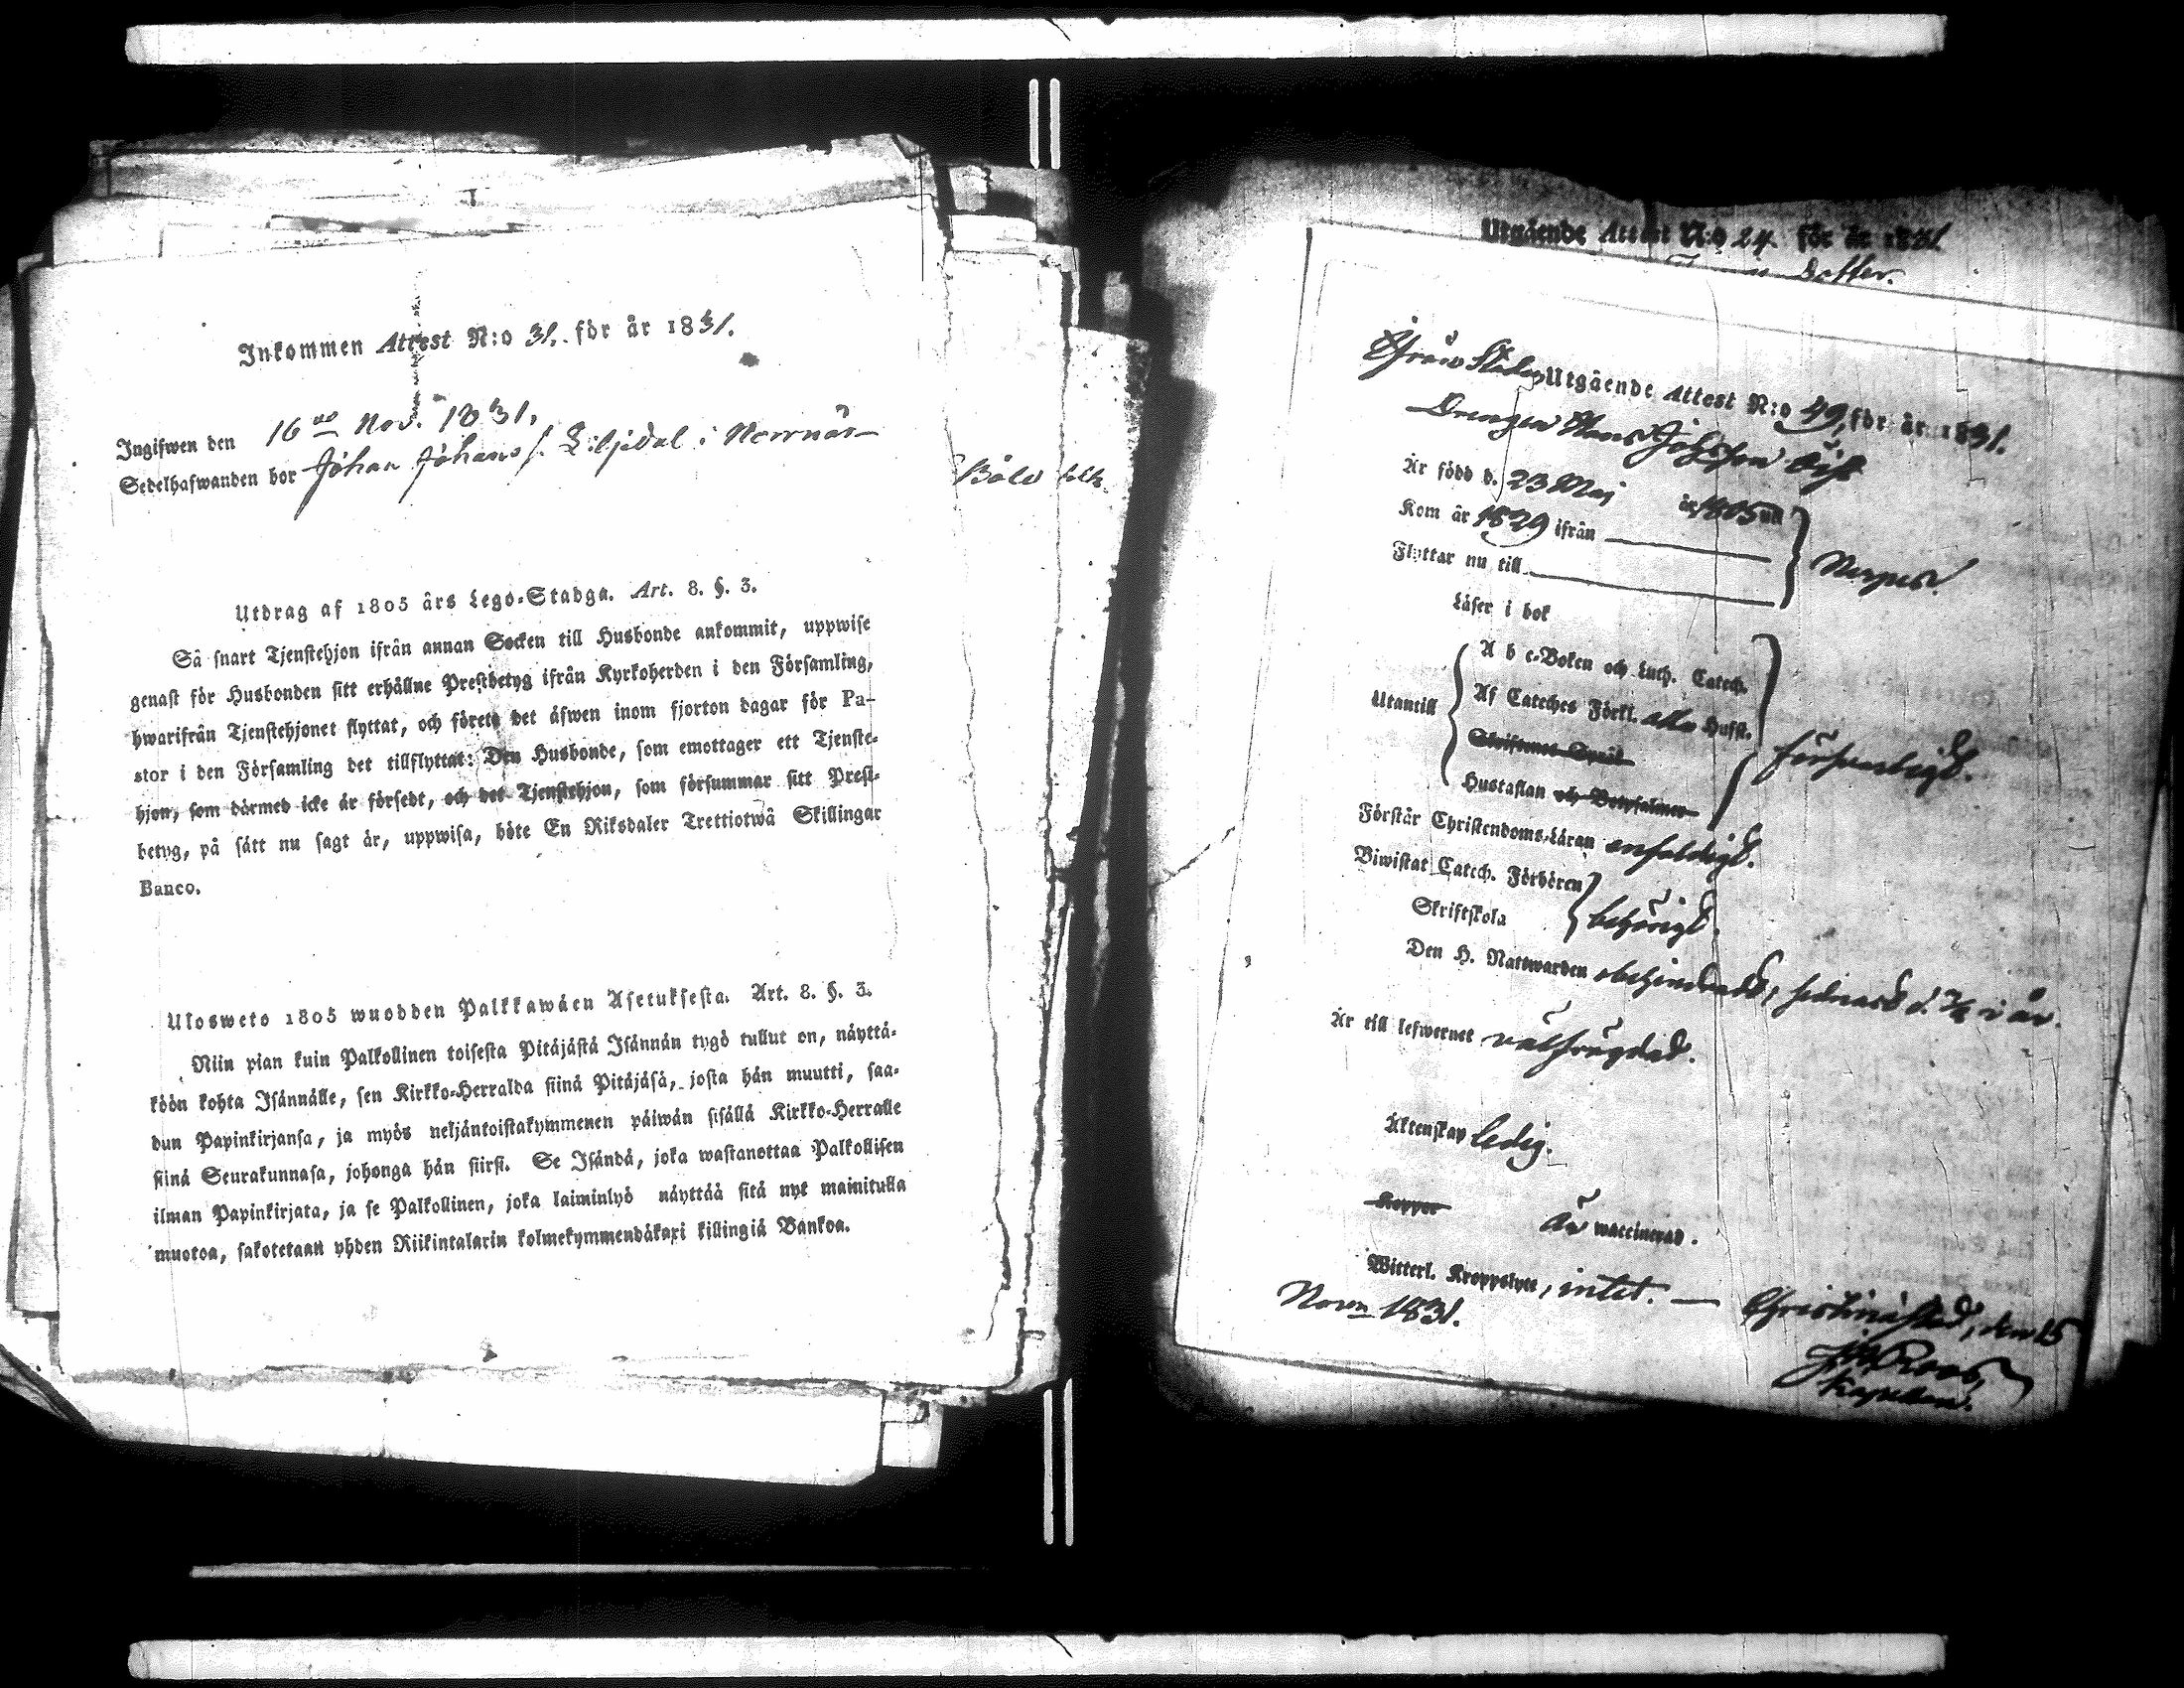 Inkommen Attest N:o 31. för år 1831.
Ingifwen den 16de Nov. 1831.
Sedelhafwanden bor Johan Johans s. Liljedal i Norrnäs
Utdrag af 1805 års Lego-Stadga. Art. 8. §. 3.
Så snart Tjenstehjon ifrån annan Socken till Husbonde ankommit, uppwise
genast för Husbonden sitt erhållne Prestbetyg ifrån Kyrkoherden i den Församling,
hwarifrån Tjenstehjonet flyttat, och förete det äfwen inom fjorton dagar för Pa-
stor i den Församling det tillflyttat: Den Husbonde, som emottager ett Tjenste-
hjon, som därmed icke är försedt, och det Tjenstehjon, som försummar sitt Prest-
betyg, på sätt nu sagt är, uppwisa, böte En Riksdaler Trettiotwå Skillingar
Banco.
Ulosweto 1805 wuodden Palkkawäen Asetuksesta. Art. 8. §. 3.
Niin pian kuin Palkollinen toisesta Pitäjästä Isännän tygö tullut on, näyttä-
köön kohta Isännälle, sen Kirkko-Herralda siinä Pitäjäsä, josta hän muutti, saa-
dun Papinkirjansa, ja myös neljäntoistakymmenen päiwän sisällä Kirkko-Herralle
siinä Seurakunnasa, johonga hän siirsi. Se Isändä, joka wastanottaa Palkollisen
ilman Papinkirjata, ja se Palkollinen, joka laiminlyö näyttää sitä nyt mainitulla
muotoa, sakotetaan yhden Riikintalarin kolmekymmendäkaxi killingiä Bankoa.
Utgående Attest N:o 24. för år 1831
dotter.
Ifrån Staden Utgående Attest N:o 49, för år 1831.
Drengen Hans Johsson
Är född d. 23 Maj år 1805 uti
Kom år 1829 ifrån
Flyttar nu till
Nerpes.
Läser i bok
Utantill
A b c-Boken och Luth. Catech.
Af Catechés Förkl. alla Hufst.
Skriftenes Språk
Hustaflan och Botpsalmer
försvarligt.
Förstår Christendoms-Läran enfaldigt.
Biwistat Catech. Förhören
Skriftskola
behörigt.
Den H. Nattwarden obehindradt, sednast d. i år.
Är till lefwernet välfrägdad.
Äktenskap ledig.
Koppor
Är waccinerad.
Witterl. Kroppslyte, intet. — Christinæstad, den 15
Novem 1831.
Roos,
Kapellan.